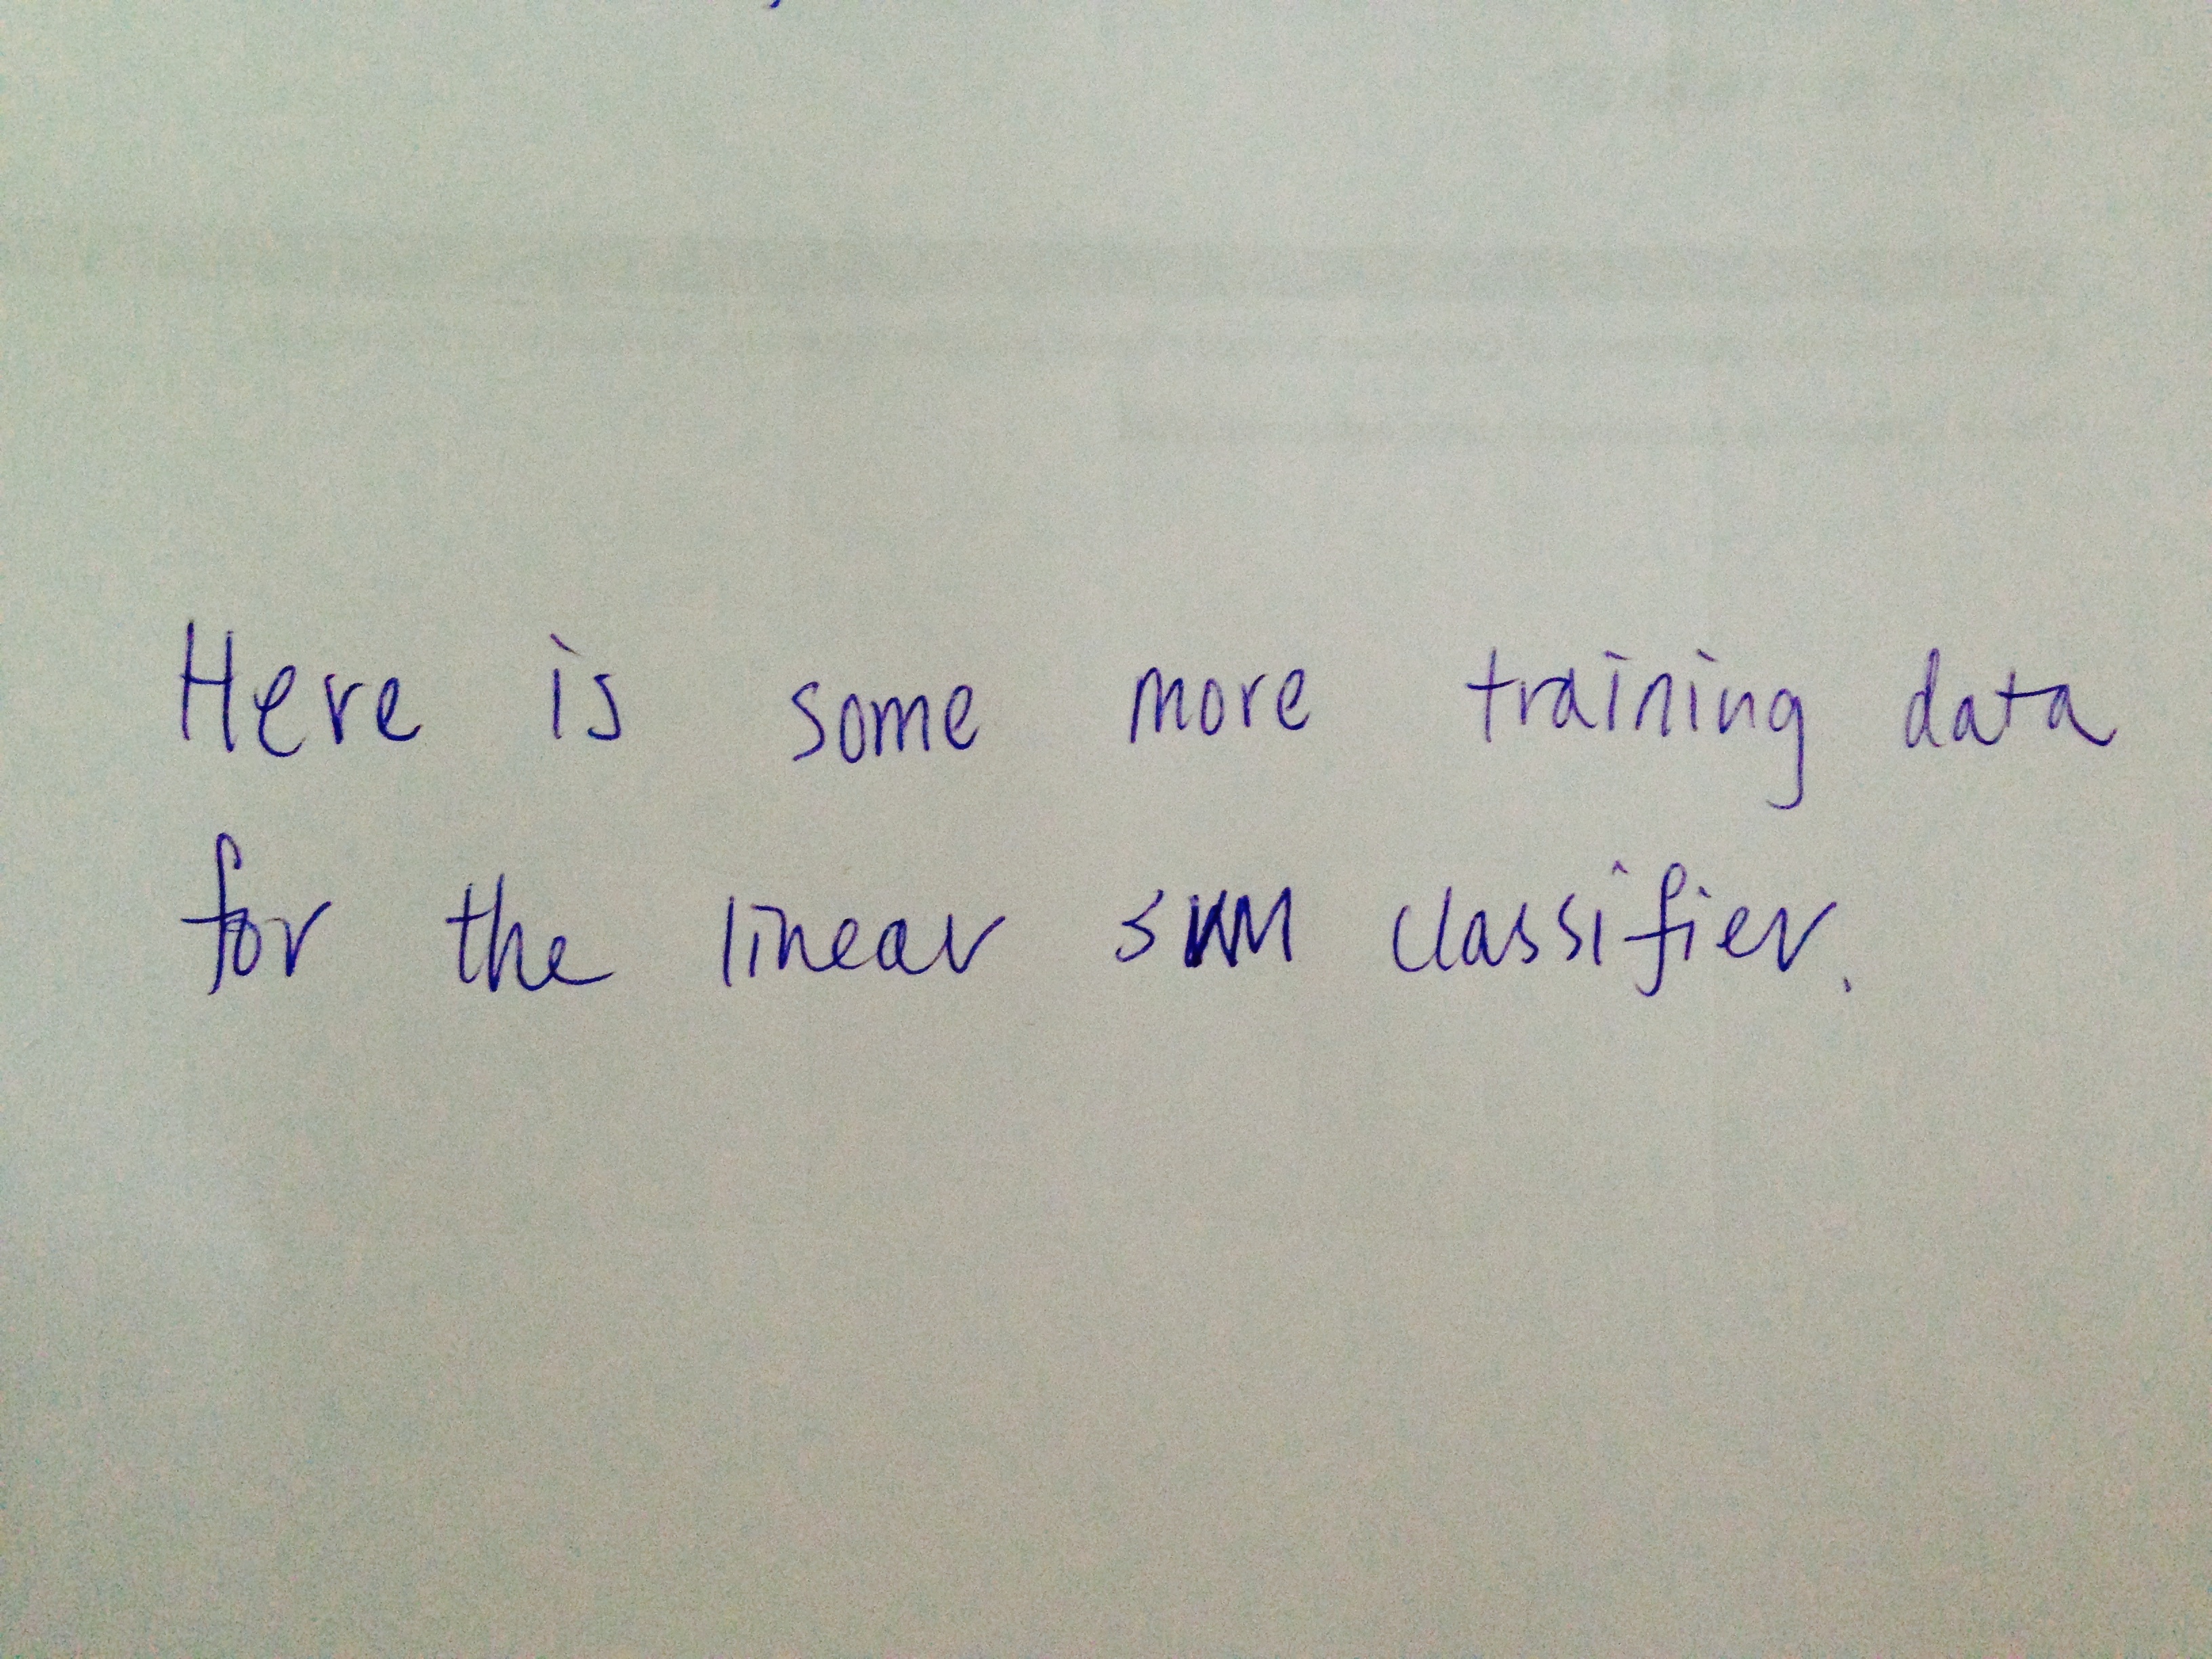 Here is some more training data
for the linear SVM classifier.